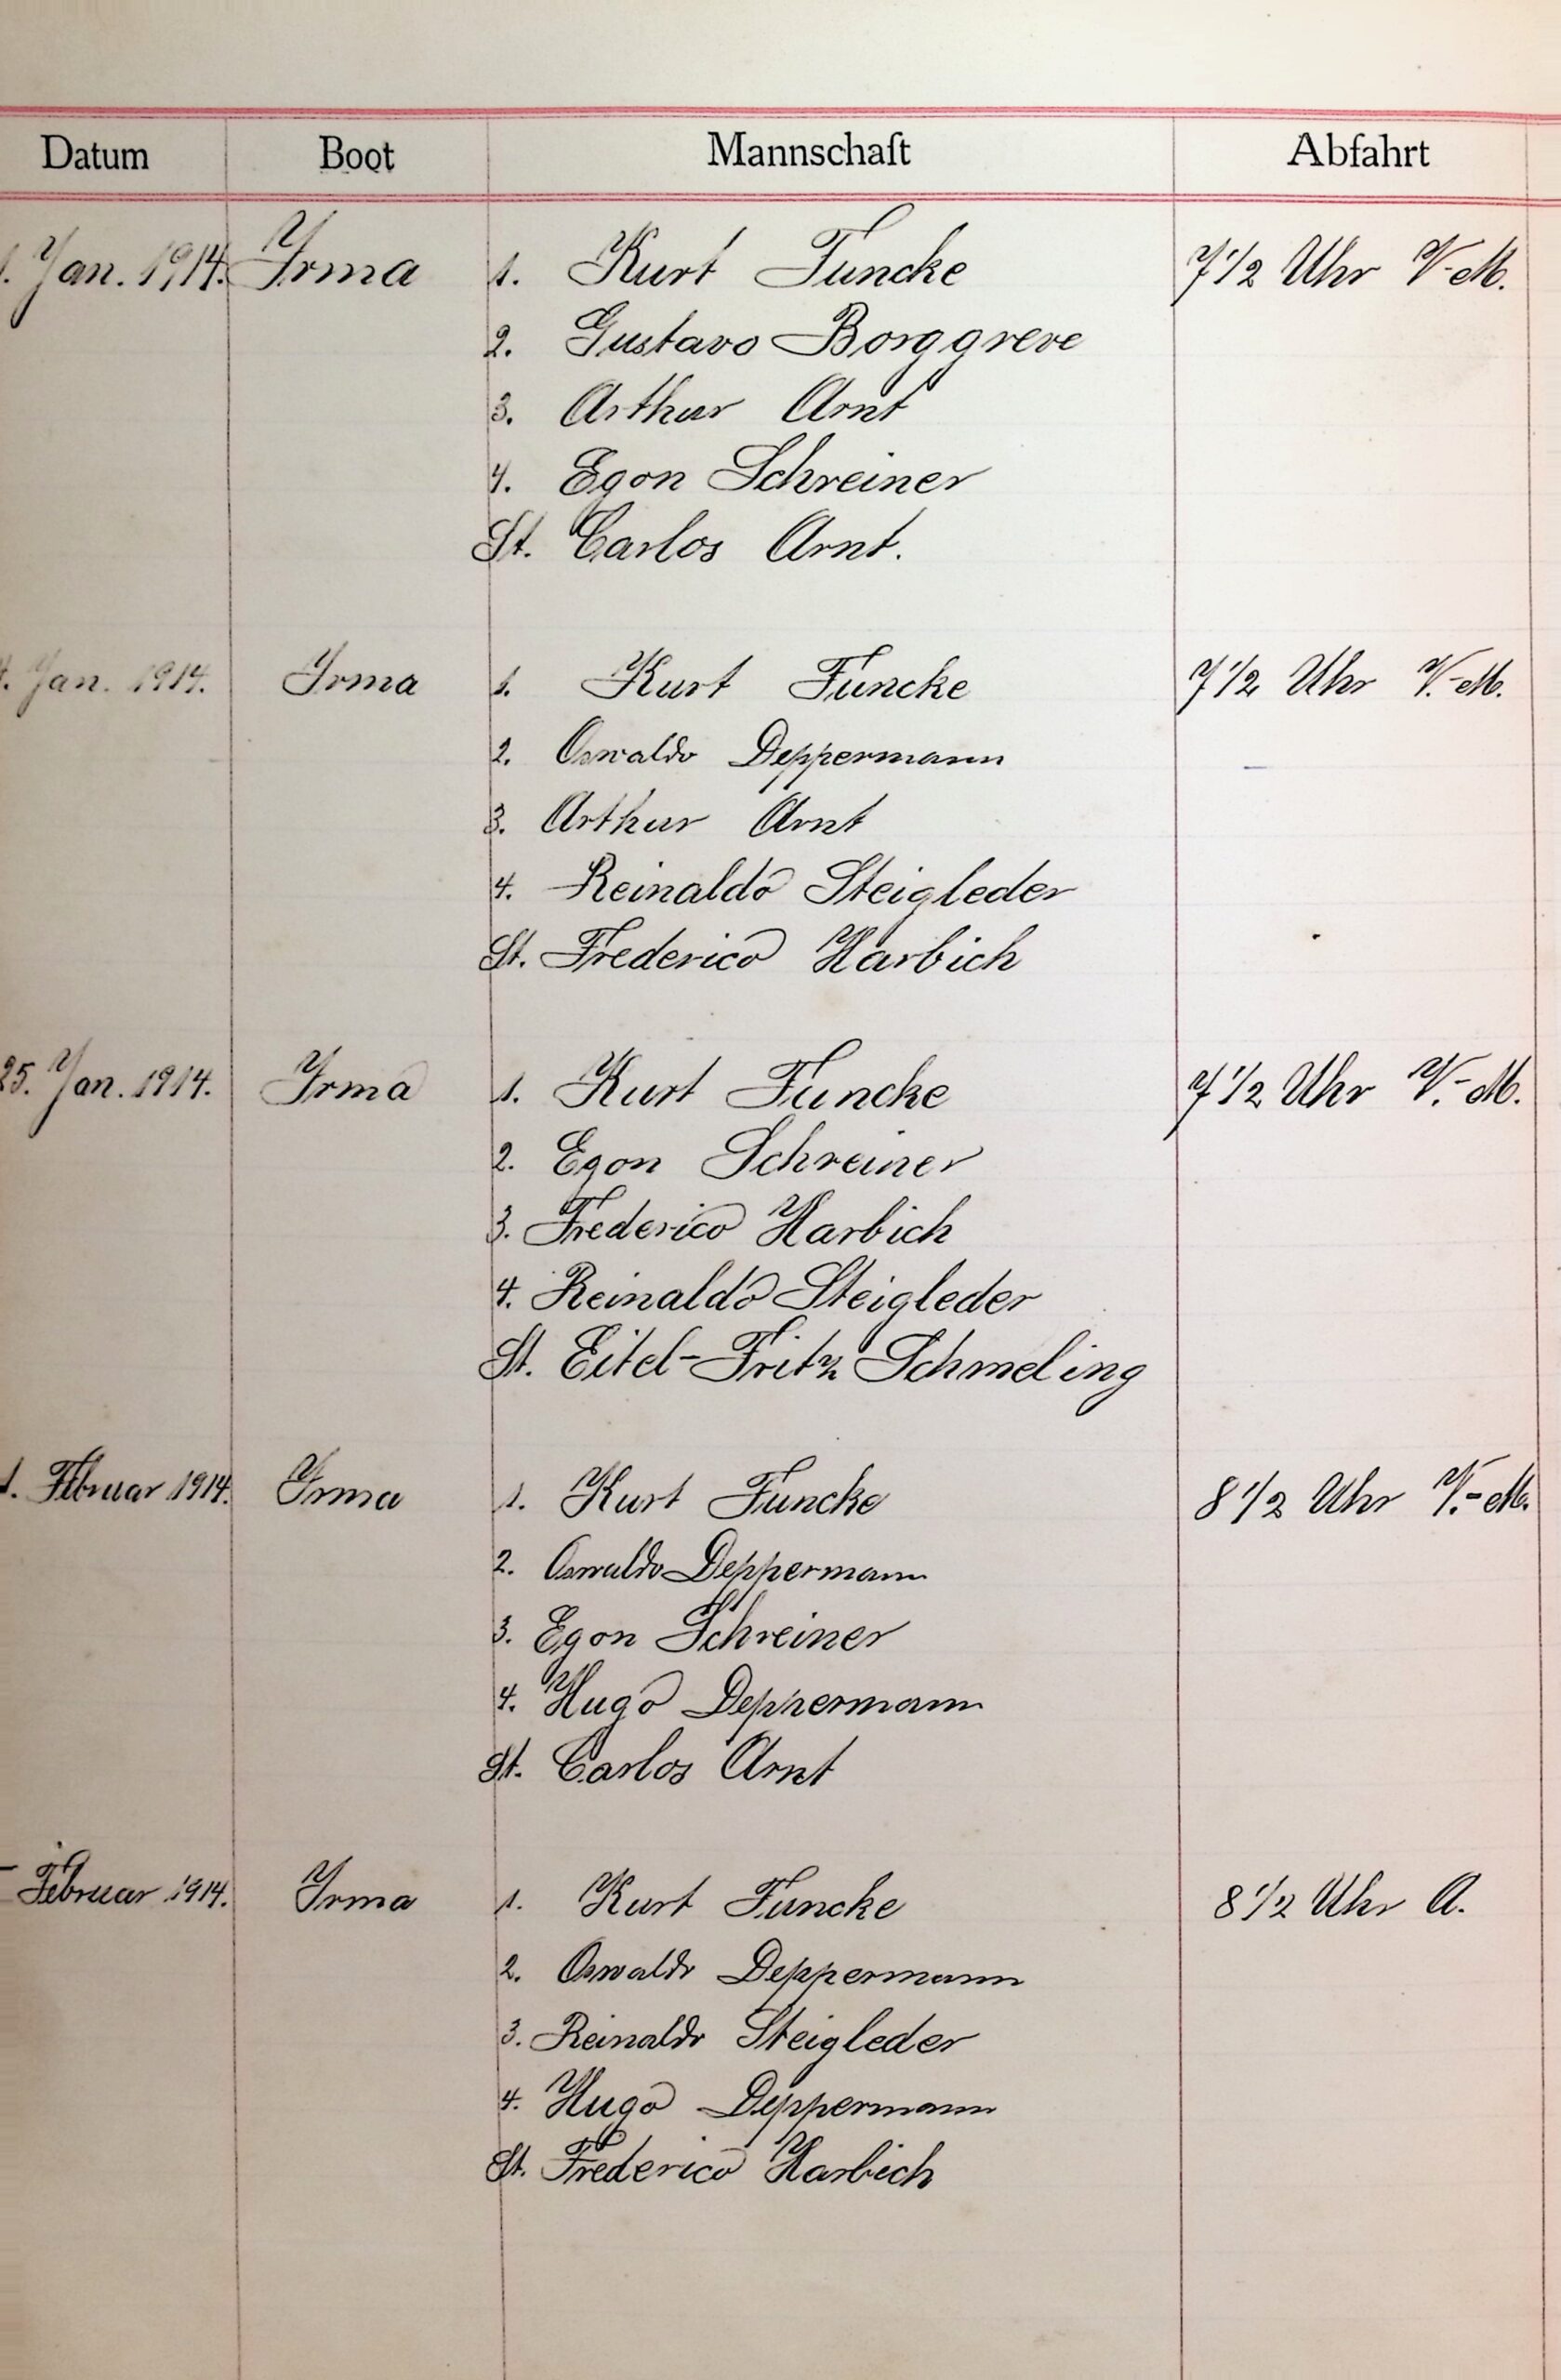 Datum Boot Mannschaft Abfahrt
1. Jan. 1914. Irma 1. Kurt Funcke 7 1/2 Uhr V-M.
2. Gustavo Borggreve
3. Arthur Arnt
4. Egon Schreiner
St. Carlos Arnt.
Jan. 1914. Irma 1. Kurt Funcke 7 1/2 Uhr V.-M.
2. Oswaldo Deppermann
3. Arthur Arnt
4. Reinaldo Steigleder
St. Frederico Harbich
25. Jan. 1914. Irma 1. Kurt Funcke 7 1/2 Uhr V.-M.
2. Egon Schreiner
3. Frederico Harbich
4. Reinaldo Steigleder
St. Eitel-Fritz Schmeling
1. Februar 1914. Irma 1. Kurt Funcke 8 1/2 Uhr V.-M.
2. Oswaldo Deppermann
3. Egon Schreiner
4. Hugo Deppermann
St. Carlos Arnt
Februar 1914. Irma 1. Kurt Funcke 8 1/2 Uhr A.
2. Oswaldo Deppermann
3. Reinaldo Steigleder
4. Hugo Deppermann
St. Frederico Harbich